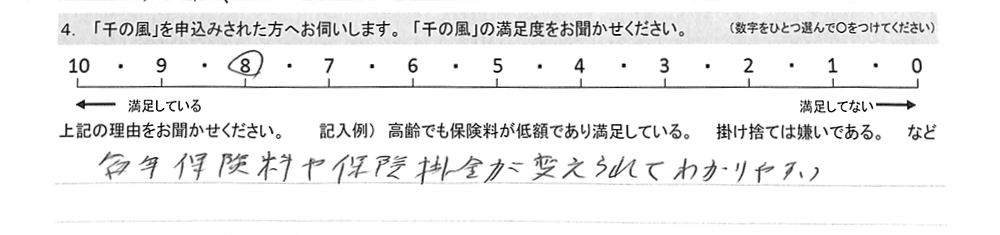 4. 「千の風」を申込みされた方へお伺いします。「千の風」の満足度をお聞かせください。 (数字をひとつ選んで○をつけてください)
10 ・ 9 ・ 8 ・ 7 ・ 6 ・ 5 ・ 4 ・ 3 ・ 2 ・ 1 ・ 0
← 満足している 満足してない →
上記の理由をお聞かせください。 記入例) 高齢でも保険料が低額であり満足している。 掛け捨ては嫌いである。 など
毎年保険料や保険掛金が変えられてわかりやすい